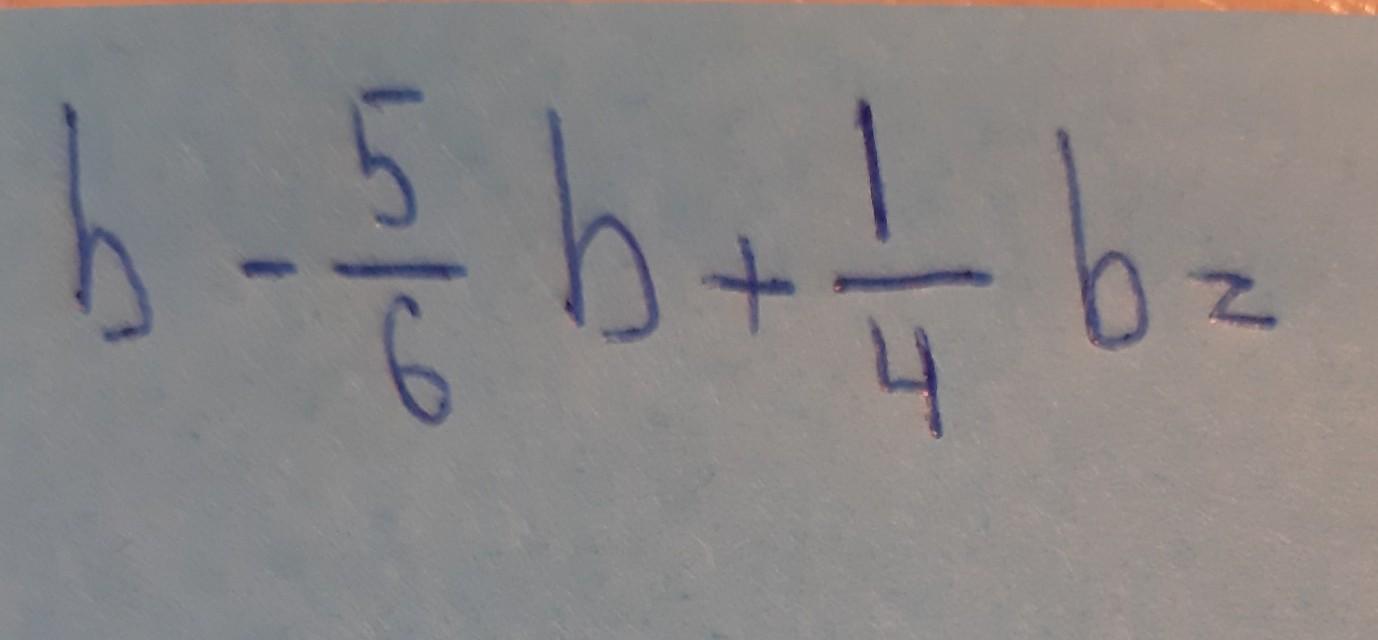 b - 5/6 b + 1/4 b =